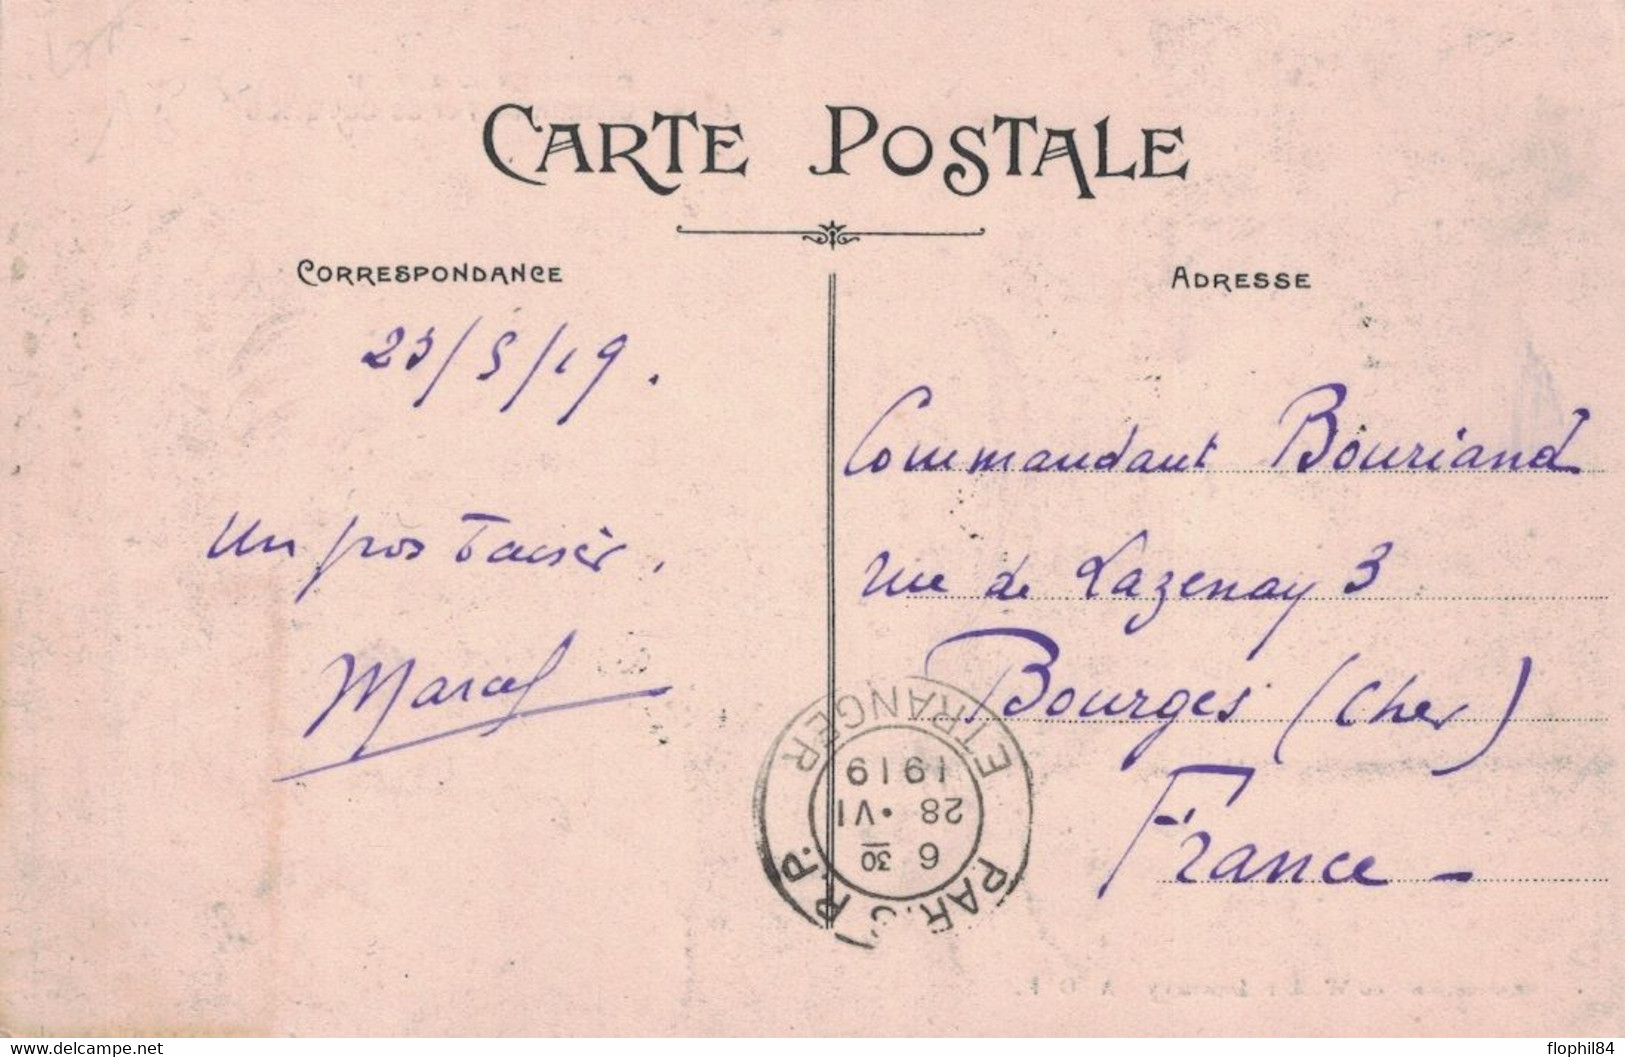 CARTE POSTALE
CORRESPONDANCE
23/5/19.
Un gros baiser.
Marcel
ADRESSE
Commandant Bouriand
rue de Lazenay 3
Bourges (Cher)
France -
PARIS R.P.
6 30
28 • VI
1919
ETRANGER
www.delcampe.net
flophil84